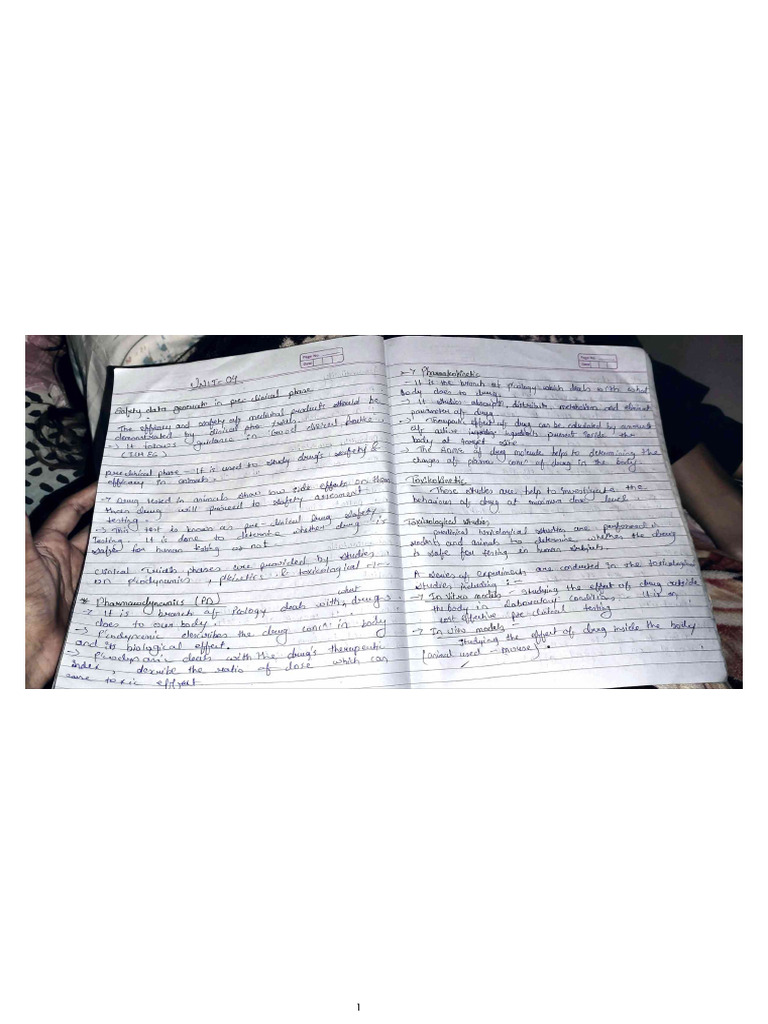 Page No.
Date
UNIT-04
Safety data generate in pre clinical phase
The efficacy and safety of medicinal products should be
demonstrated by clinical phase
-> It follows guidance in Good clinical practice
(ICH E6)
preclinical phase - It is used to study drug's safety &
efficacy in animals.
-> Drug tested in animals show low side effects on them
than drug will proceed to safety assesment
testing.
-> This test is known as pre-clinical Drug safety
Testing. It is done to determine whether drug is
safe for human testing or not
clinical phases are provided by studies
on p'codynamics, p'kinetics & toxicological etc.
* Pharmacodynamics (PD)
-> It is branch of P'cology deals with what drugs
does to our body.
-> P'codynamic describes the drug conc. in body
and its biological effect.
-> deals with the drug's therapeutic
index, describe the ratio of dose which can
cause toxic effect
Page No.
Date
-> Pharmacokinetic
- It is the branch of p'cology which deals with what
body does to drug.
-> It studies absorptn, distributn, metabolism and eliminatn
parameter of drugs
-> Therapeutic effect of drug can be calculated by amount
of active present inside the
body at target site
-> The ADME of drug molecule helps to determining the
changes of plasma conc. of drug in the body
Toxikokinetic
- These studies are help to investigate the
behaviour of drug at minimum dose level
Toxicological studies
preclinical toxicological studies are performed in
and animals to determine whether the drug
is safe for testing in human subjects.
A series of experiments are conducted in the toxicological
studies including :-
-> In vitro models - studying the effect of drug outside
the body in laboratory conditions. It is an
cost effective pre-clinical testing
-> In vivo models -
studying the effect of drug inside the body
(animal used - mouse).
1